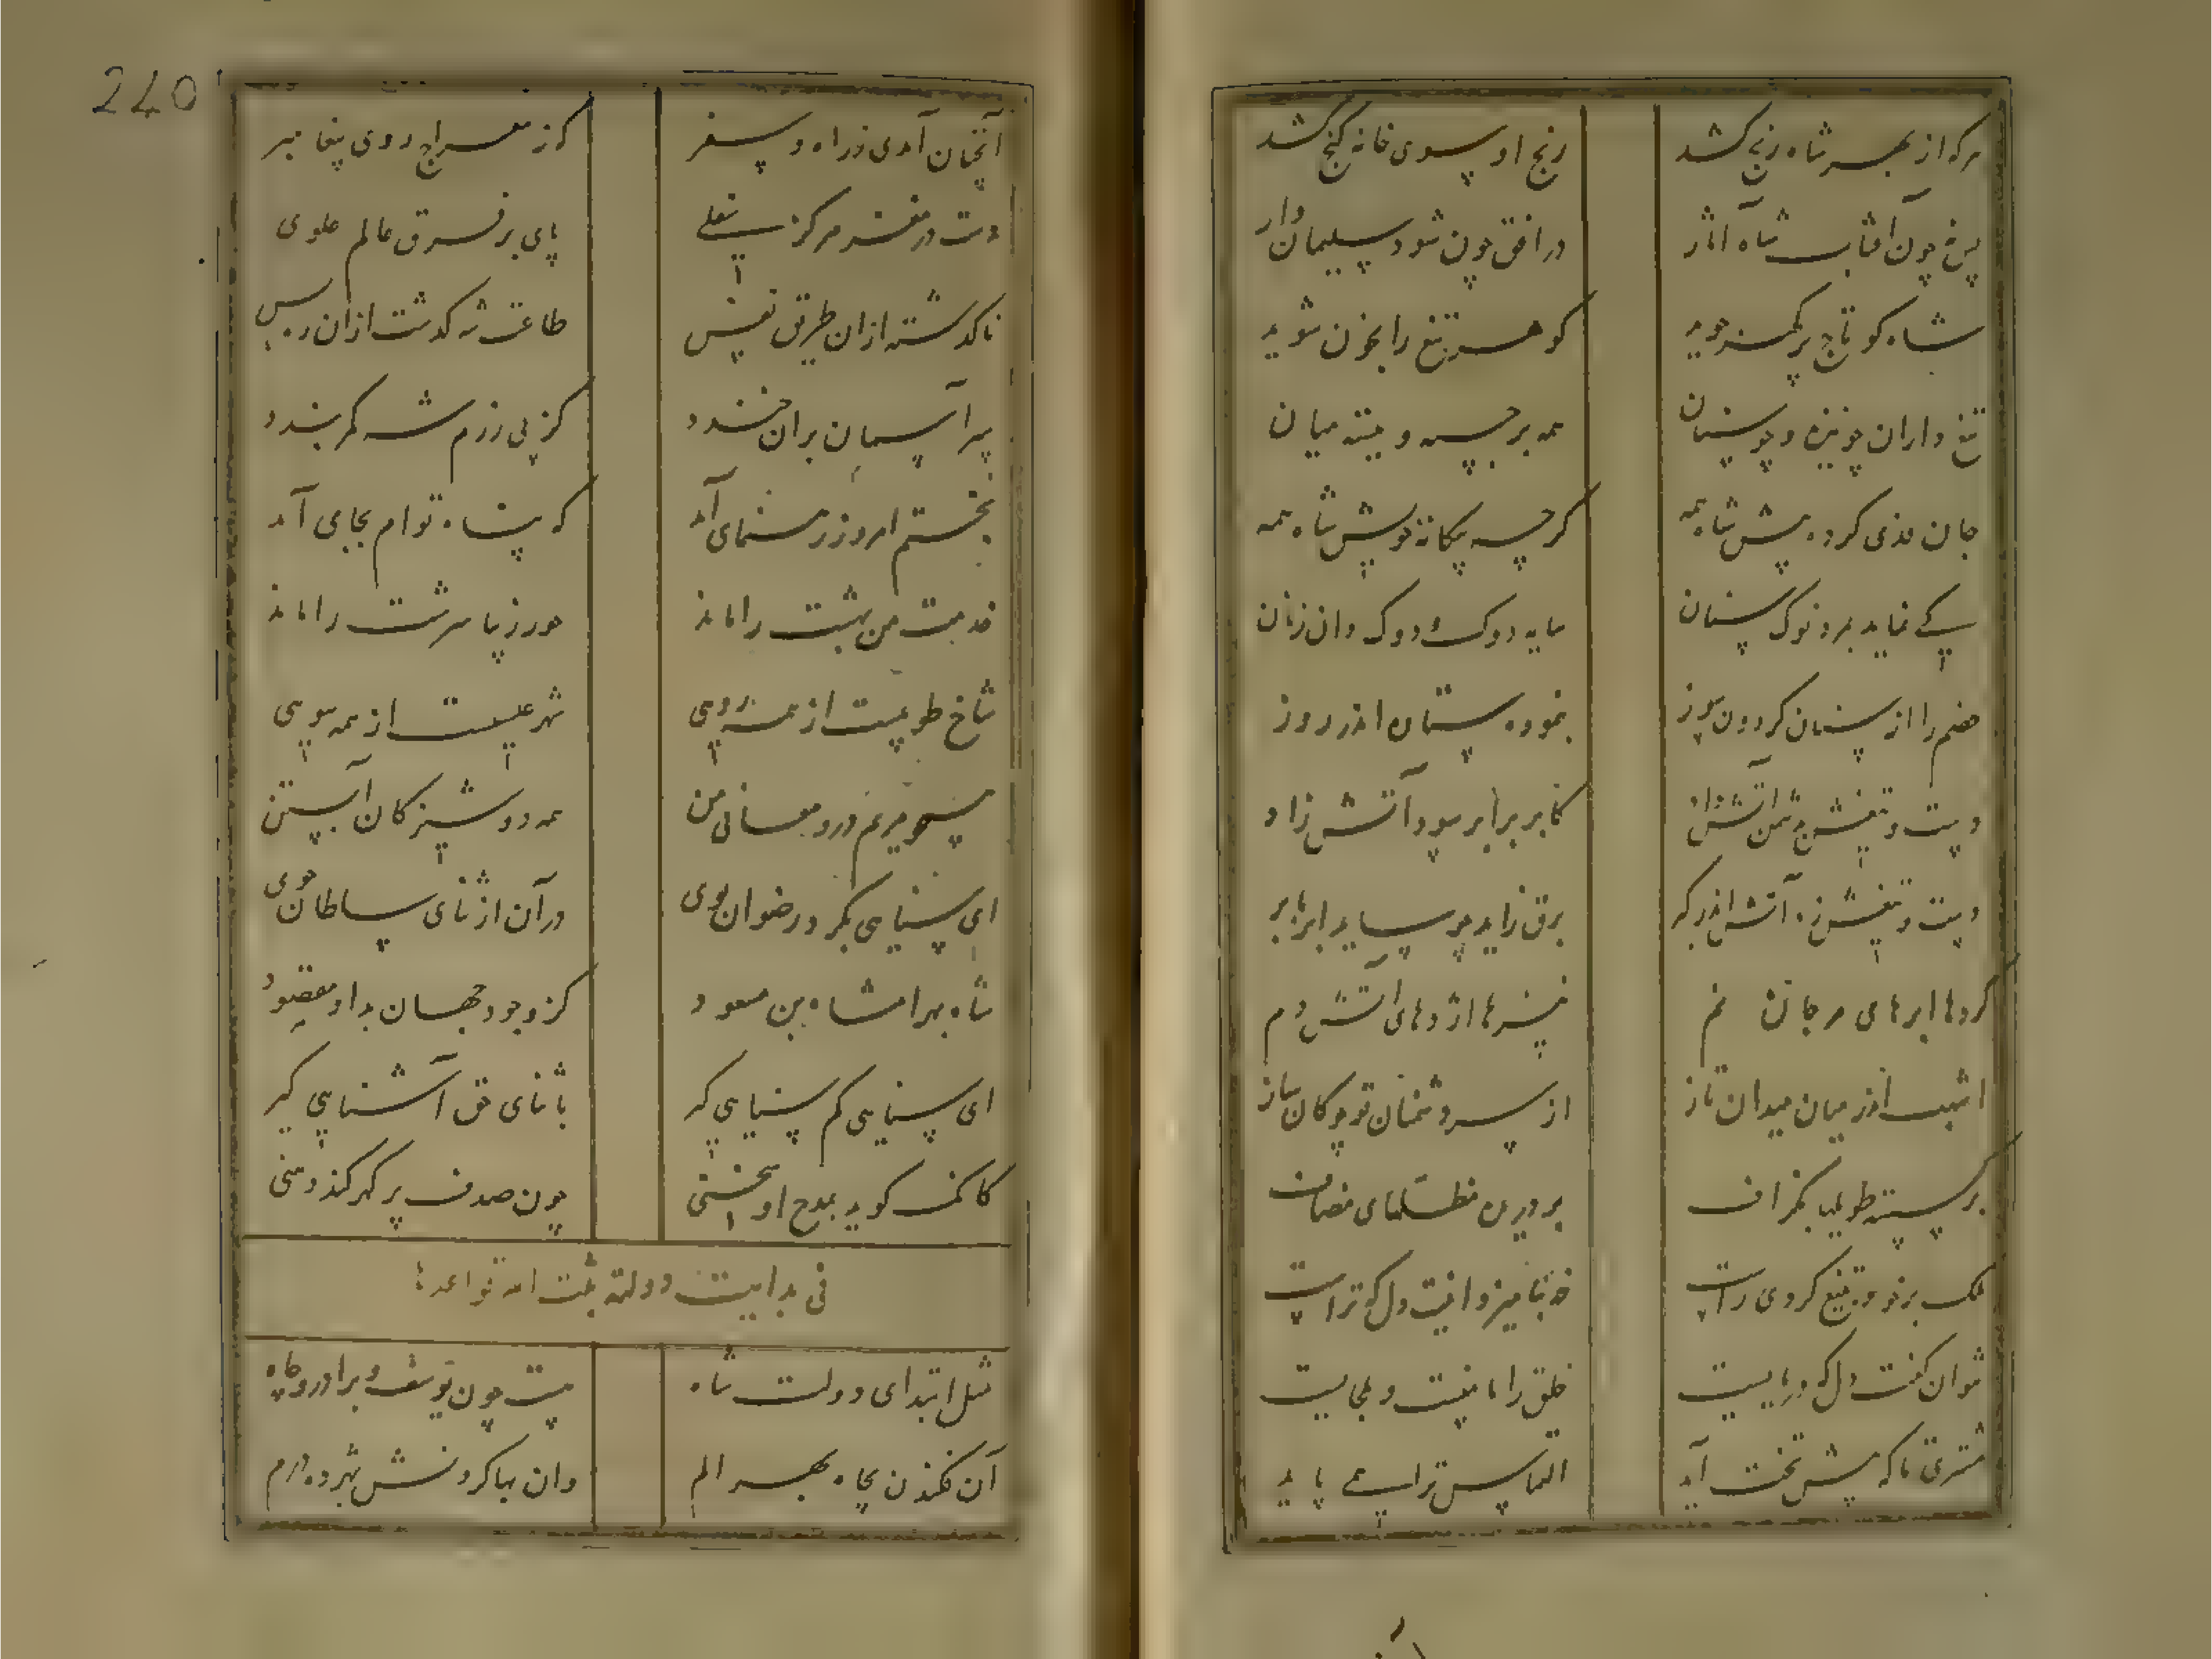 هرکه از بهر شاه رنج کشد رنج او سوی خانه گنج کشد
چون آفتاب شاه آثار در افق چون شود سلیمان وار
شاه کو تاج پرگهر جوید گوهر تیغ را بخون شوید
تیغ داران چو نیزه و چو سنان همه برجسته و بسته میان
جان فدی کرده پیش شاه همه گرچه بیگانه خویش شاه همه
نماید بمرد نوک سنان سایه دوک و دوک دان زنان
خصم را از سنان گردون سوز بنموده ستاره اندر روز
دست و تیغش آتش زاد کابر برابر سود آتش زاد
دست و تیغش زد آتش اندر گبر برق زاید چو ساید ابر بابر
گردها ابرهای مرجان نم نیزها اژدهای آتش دم
اشهب اندر میان میدان تاز از سر دشمنان تو چوگان باز
بر طویلها بگزاف بر دریده مصاف
ملک برخود بتیغ کردی راست دل که تراست
توان گفت دل که دریاییست خلق را
مشتری تا که پیش تخت آید التماس ترا پاید
240
آنچنان آمدی ز راه و سفر کز معراج روی پیغامبر
دست در مغز مرکز سفلی پای بر فرق عالم علوی
ناگذشته ازان طریق نفس طاعت شه گذشت ازان ره بس
سر آسمان بران خندد کز پی رزم شه کمر بندد
بختم امروز رهنمای آمد که پناه توام بجای آمد
خدمت من بهشت را ماند حور زیبا سرشت را ماند
شاخ طوبیست از همه رویی شهر عیسیست از همه سویی
همچو مریم در معانی من همه دوشیزگان آبستن
ای سنایی بگرد رضوان پوی در آن از ثنای سلطان جوی
شاه بهرامشاه بن مسعود کز وجود جهان بد او مقصود
ای سنایی کم سنایی گیر با ثنای حق آشنایی گیر
کانکس گوید بمدح او سخنی چون صدف پر گهر کند دهنی
فی بدایت دولته ثبت الله قواعدها
مثل ابتدای دولت شاه هست چون یوسف و برادر و چاه
آن فکندن بچاه بهر الم وان بها کردنش بهژده درم